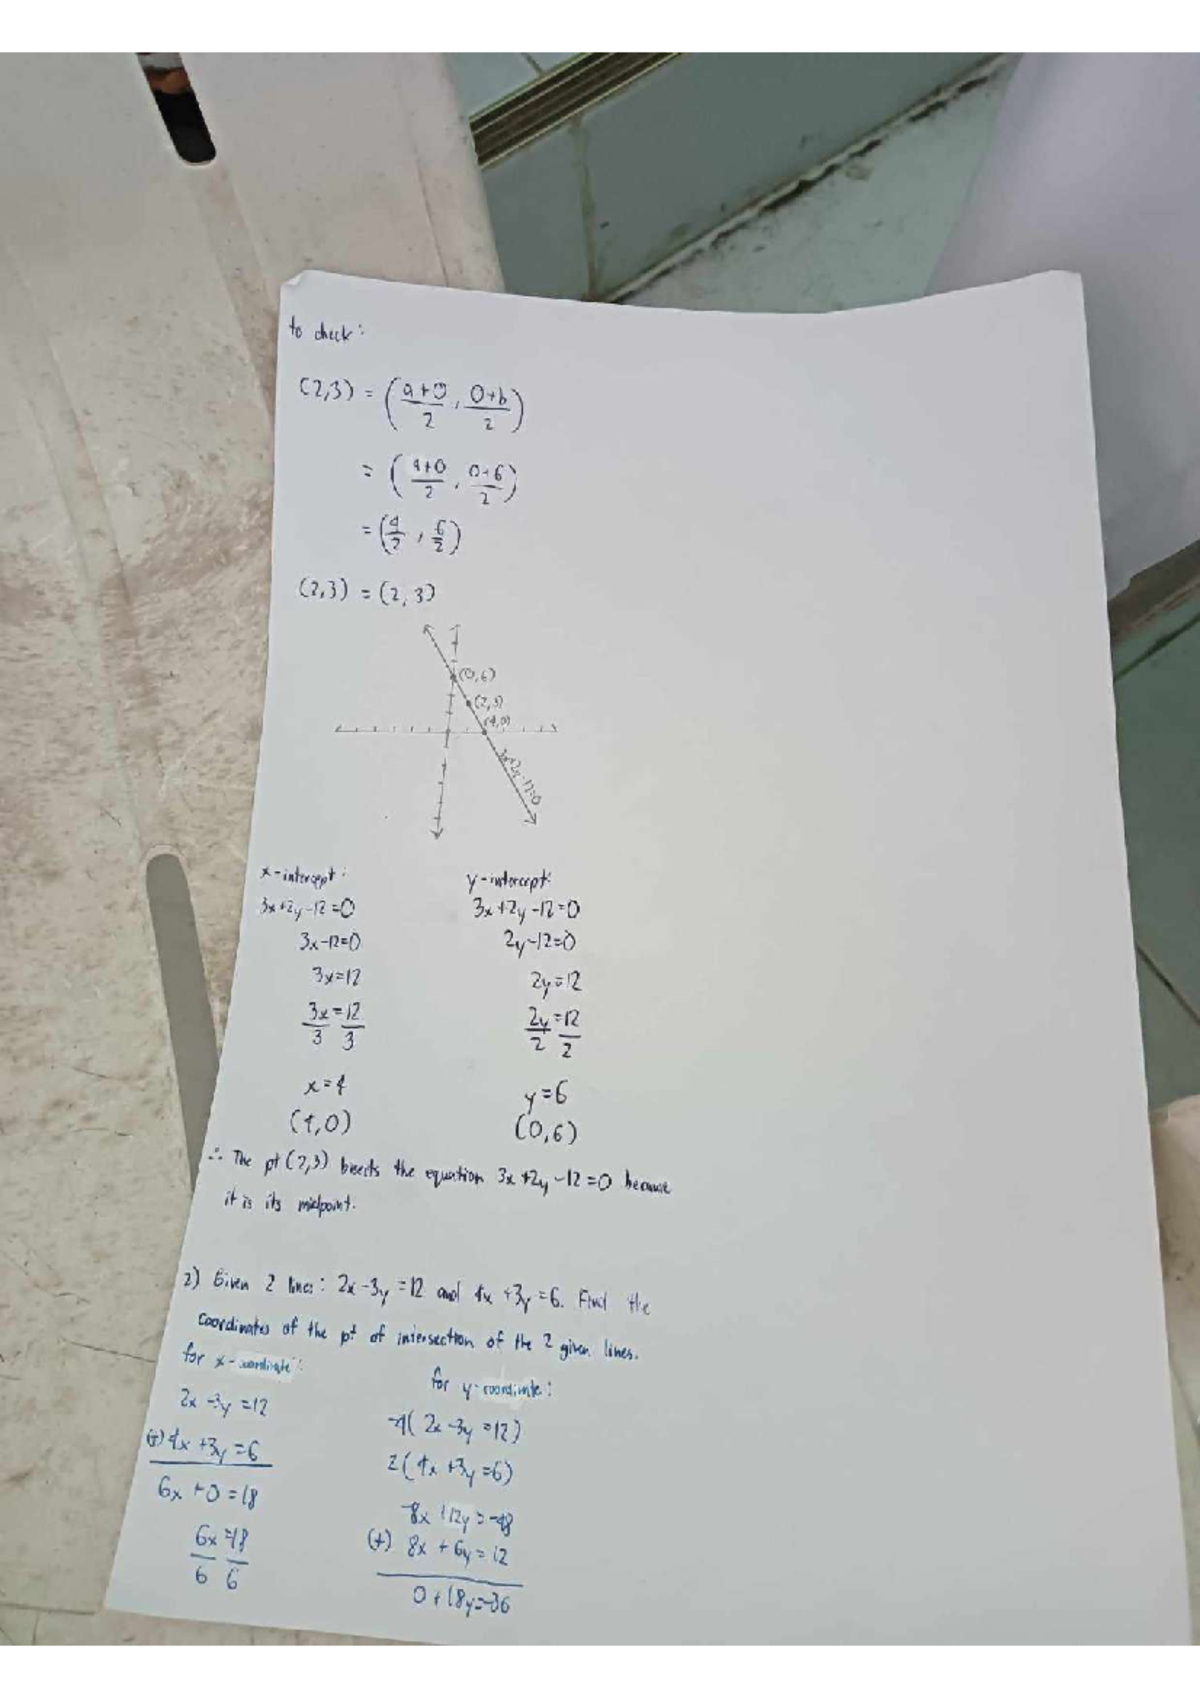 to check:
(2,3) = (a+0/2, 0+b/2)
= (4+0/2, 0+6/2)
= (4/2, 6/2)
(2,3) = (2,3)
(0,6)
(2,3)
(4,0)
3x+2y-12=0
x-intercept:
3x+2y-12=0
3x-12=0
3x=12
3x/3=12/3
x=4
(4,0)
y-intercept:
3x+2y-12=0
2y-12=0
2y=12
2y/2=12/2
y=6
(0,6)
∴ The pt (2,3) bisects the equation 3x+2y-12=0 because
it is its midpoint.
2) Given 2 lines: 2x-3y=12 and 4x+3y=6. Find the
coordinates of the pt of intersection of the 2 given lines.
for x-coordinate:
2x-3y=12
(+) 4x+3y=6
6x+0=18
6x/6=18/6
for y-coordinate:
-4(2x-3y=12)
2(4x+3y=6)
-8x+12y=-48
(+) 8x+6y=12
0+18y=-36